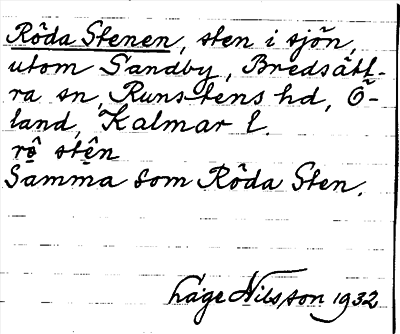 Röda Stenen, sten i sjön,
utom Sandby, Bredsätt-
ra sn, Runstens hd, Ö-
land, Kalmar l.
rö̂ stên
Samma som Röda Sten.
Åge Nilsson 1932